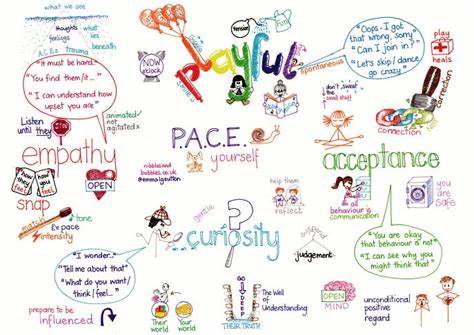 what we see
beneath
thoughts
feelings
A.C.Es
trauma
what lies
beneath
playful
tension
spontaneous
"Oops - I got
that wrong, sorry"
"Can I join in?"
"Let's skip / dance
go crazy"
play
heals
"It must be hard."
"You find them it..."
"I can understand how
upset you are"
NOW
o'clock
animated✓
not
agitated✗
don't sweat
the small stuff
connection
correction
Listen
until
they
STOP
P.A.C.E.
yourself
empathy
acceptance
how
they
feel
how
you
feel
OPEN
snap
nibbles and
bubbles.co.uk
@emmalgsutton
help them
reflect
all
behaviour is
communication
you
are
SAFE
match
tone
pace
intensity
gentle
?
curiosity
suspend
judgement
"You are okay
that behaviour is not"
"I can see why you
might think that"
"I wonder..."
"Tell me about that"
"What do you want
/ think / feel..."
prepare to be
influenced
Their
world
Your
world
GO
DEEP
The Well
of
Understanding
THEIR TRUTH
OPEN
MIND
unconditional
positive
regard